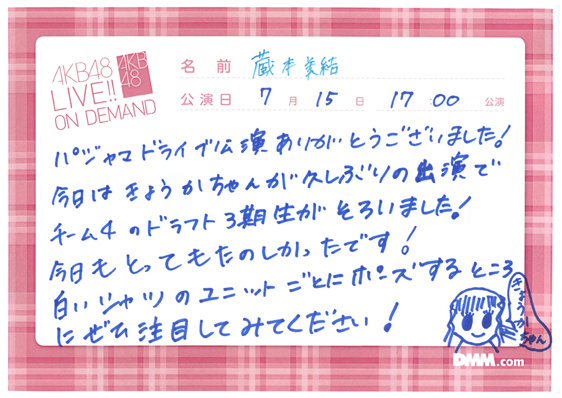 AKB48
LIVE!!
ON DEMAND
AKB
48
名 前 蔵本美結
公演日 7 月 15 日 17:00 公演
パジャマドライブ公演ありがとうございました!
今日はきょうかちゃんが久しぶりの出演で
チーム4のドラフト3期生がそろいました!
今日もとってもたのしかったです!
白いシャツのユニットごとにポーズするところ
にぜひ注目してみてください!
きょうかちゃん
DMM.com